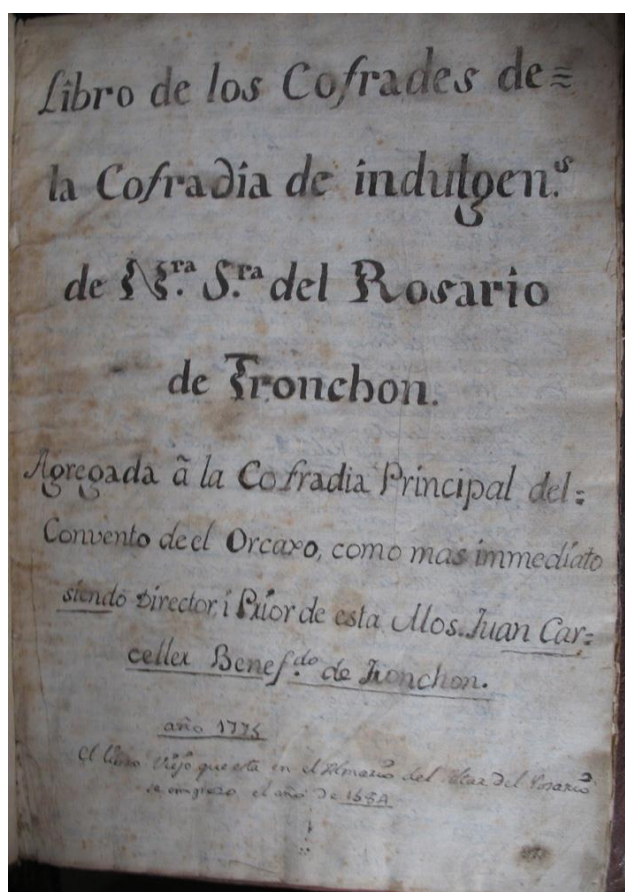 Libro de los Cofrades de=
la Cofradia de indulgen.s
de N.ra S.ra del Rosario
de Tronchon.
Agregada â la Cofradia Principal del=
Convento de el Orcaxo, como mas immediato
siendo Director, i Prior de esta Mos. Juan Car=
celler Benef.do de Tronchon.
año 1775
El libro viejo que esta en el Almario del Altar del Rosario
se empezo el año de 1684